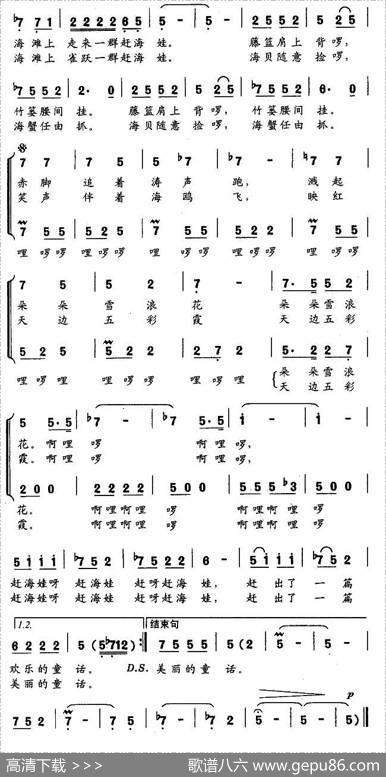 ♭7 7 1 | 2 2 2 2 6 5 | 5 - | 5 - | 2 5 5 2 | 5 2 5 |
海滩上 走来一群赶海 娃。 藤篮肩上 背啰,
海滩上 雀跃一群赶海 娃。 海贝随意 捡啰,
♭7 5 5 2 | 2· 0 | 2 5 5 2 | 5 2 5 | ♭7 5 5 2 | 6· 0 |
竹篓腰间 挂。 藤篮肩上 背啰, 竹篓腰间 挂。
海蟹任由 抓。 海贝随意 捡啰, 海蟹任由 抓。
7 7 | 7 5 | 5 ♭7 | ♭7 - | ♮7 7
赤脚 追着 涛声 跑, 溅起
笑声 伴着 海鸥 飞, 映红
7 5 5 | 5 2 2 | 7 5 5 | 5 2 2 | 7 5 5
哩 啰啰 哩 啰啰 哩 啰啰 哩 啰啰 哩 啰啰
7 5 | 5 2 | 7 - | 7· 5 5 2
朵朵 雪浪 花 朵 朵雪浪
天边 五彩 霞 天 边五彩
5 2 5 | 5 2 2 | 7 - | 5· 2 2 7
哩啰哩 哩 啰啰 哩 啰 朵 朵雪浪
天 边五彩
5 5·5 | ♭7 - | ♭7 5·5 | i - | i -
花。啊哩 啰 啊哩 啰,
霞。啊哩 啰 啊哩 啰,
2 0 0 | 2 2 2 2 | 5 0 0 | 5 5 5 ♭3 | 5 0 0
花。 啊哩啊哩 啰 啊哩啊哩 啰
霞。 啊哩啊哩 啰 啊哩啊哩 啰
5 i i i | ♭7 5 2 | ♭7 5 5 2 | 6 - | 5 i i i | ♭7 5 2
赶海娃呀 赶海娃 赶呀赶海 娃, 赶 出了 一篇
赶海娃呀 赶海娃 赶呀赶海 娃, 赶 出了 一篇
1.2. 结束句
6 2 2 2 | 5 (5♭712) :‖ 7 5 5 5 | 5 (2 | 5 - | 5 -
欢乐的童 话。 D.S. 美丽的童 话。
美丽的童 话。
p
7 5 2 | ♭7 - | ♭7 5 | ♭7 2 | 5 - | 5 - | 5 5) ‖
高清下载 >>> 歌谱八六 www.gepu86.com